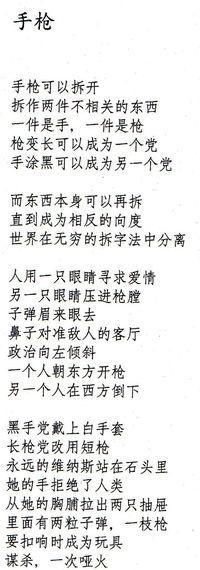 手枪
手枪可以拆开
拆作两件不相关的东西
一件是手，一件是枪
枪变长可以成为一个党
手涂黑可以成为另一个党
而东西本身可以再拆
直到成为相反的向度
世界在无穷的拆字法中分离
人用一只眼睛寻求爱情
另一只眼睛压进枪膛
子弹眉来眼去
鼻子对准敌人的客厅
政治向左倾斜
一个人朝东方开枪
另一个人在西方倒下
黑手党戴上白手套
长枪党改用短枪
永远的维纳斯站在石头里
她的手拒绝了人类
从她的胸脯拉出两只抽屉
里面有两粒子弹，一枝枪
要扣响时成为玩具
谋杀，一次哑火